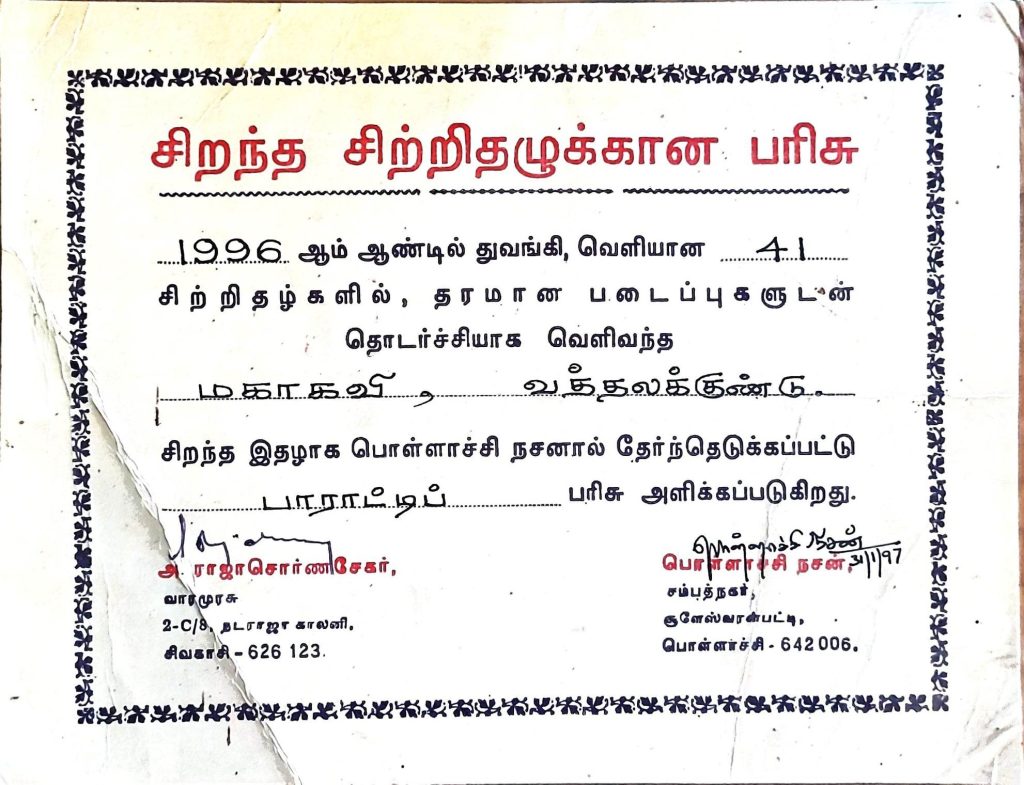 சிறந்த சிற்றிதழுக்கான பரிசு
1996 ஆம் ஆண்டில் துவங்கி, வெளியான 41
சிற்றிதழ்களில், தரமான படைப்புகளுடன்
தொடர்ச்சியாக வெளிவந்த
மகாகவி, வத்தலக்குண்டு.
சிறந்த இதழாக பொள்ளாச்சி நசனால் தேர்ந்தெடுக்கப்பட்டு
பாராட்டிப் பரிசு அளிக்கப்படுகிறது.
பொள்ளாச்சி நசன் 31/1/97
அ. ராஜாசொர்ணசேகர்,
வாரமுரசு
2-C/8, நடராஜா காலனி,
சிவகாசி - 626 123.
பொள்ளாச்சி நசன்,
சம்பத்நகர்,
சூளேஸ்வரன்பட்டி,
பொள்ளாச்சி - 642 006.